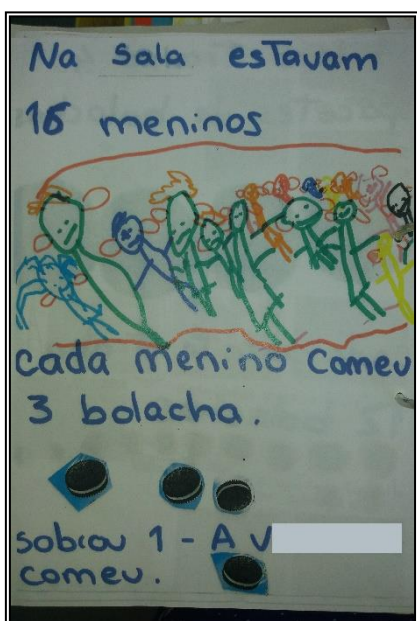 Na Sala estavam
16 meninos
cada menino comeu
3 bolacha.
sobrou 1 - A V
comeu.